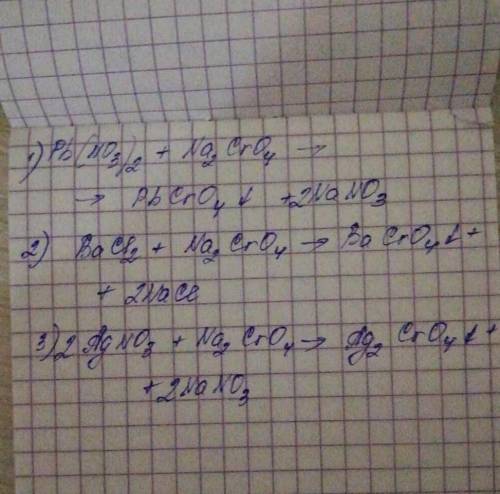 1) Pb(NO₃)₂ + Na₂CrO₄ →
→ PbCrO₄↓ + 2NaNO₃
2) BaCl₂ + Na₂CrO₄ → BaCrO₄↓ +
+ 2NaCl
3) 2AgNO₃ + Na₂CrO₄ → Ag₂CrO₄↓ +
+ 2NaNO₃